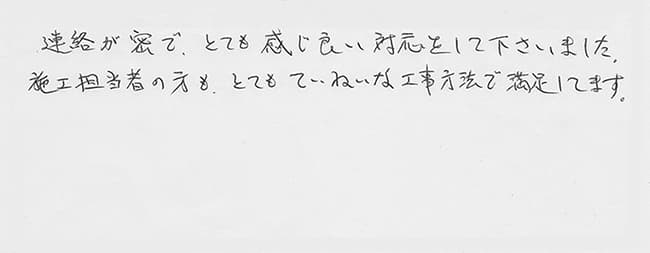 連絡が密で、とても感じ良い対応をして下さいました。
施工担当者の方も、とてもていねいな工事方法で満足してます。